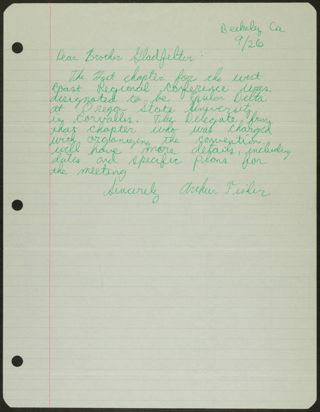 Berkeley Ca
9/26
Dear Brother Gladfelter:
The Host chapter for the west
Coast Regional Conference was
designated to be Upsilon Delta
at Oregon State University
in Corvallis. The Delegate from
that chapter who was charged
with organizing the convention,
will have more details, including
dates and specific plans for
the meeting
Sincerely Arthur Fisher